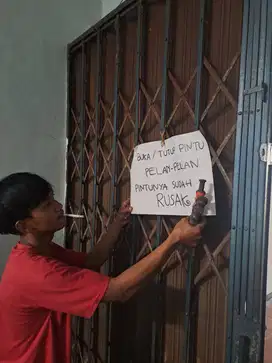 BUKA / TUTUP PINTU
PELAN-PELAN
PINTUNYA SUDAH
RUSAK